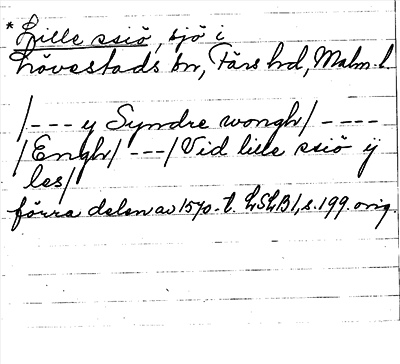 * Lille ssiö, sjö i
Lövestads sn, Färs hd, Malm. l.
/--- y Syndre wongh/ ----
/Engh/ ---/ Vid lille ssiö ij
les/
förra delen av 1570-t. LSLB 1, s. 199. orig.